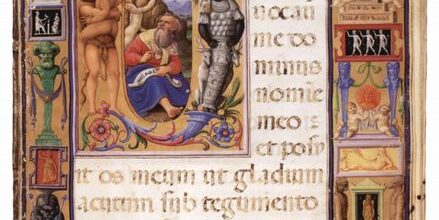 can
me do
minus
nomie
meo s
et posu
it os meum ut gladium
acutum sub tegumento